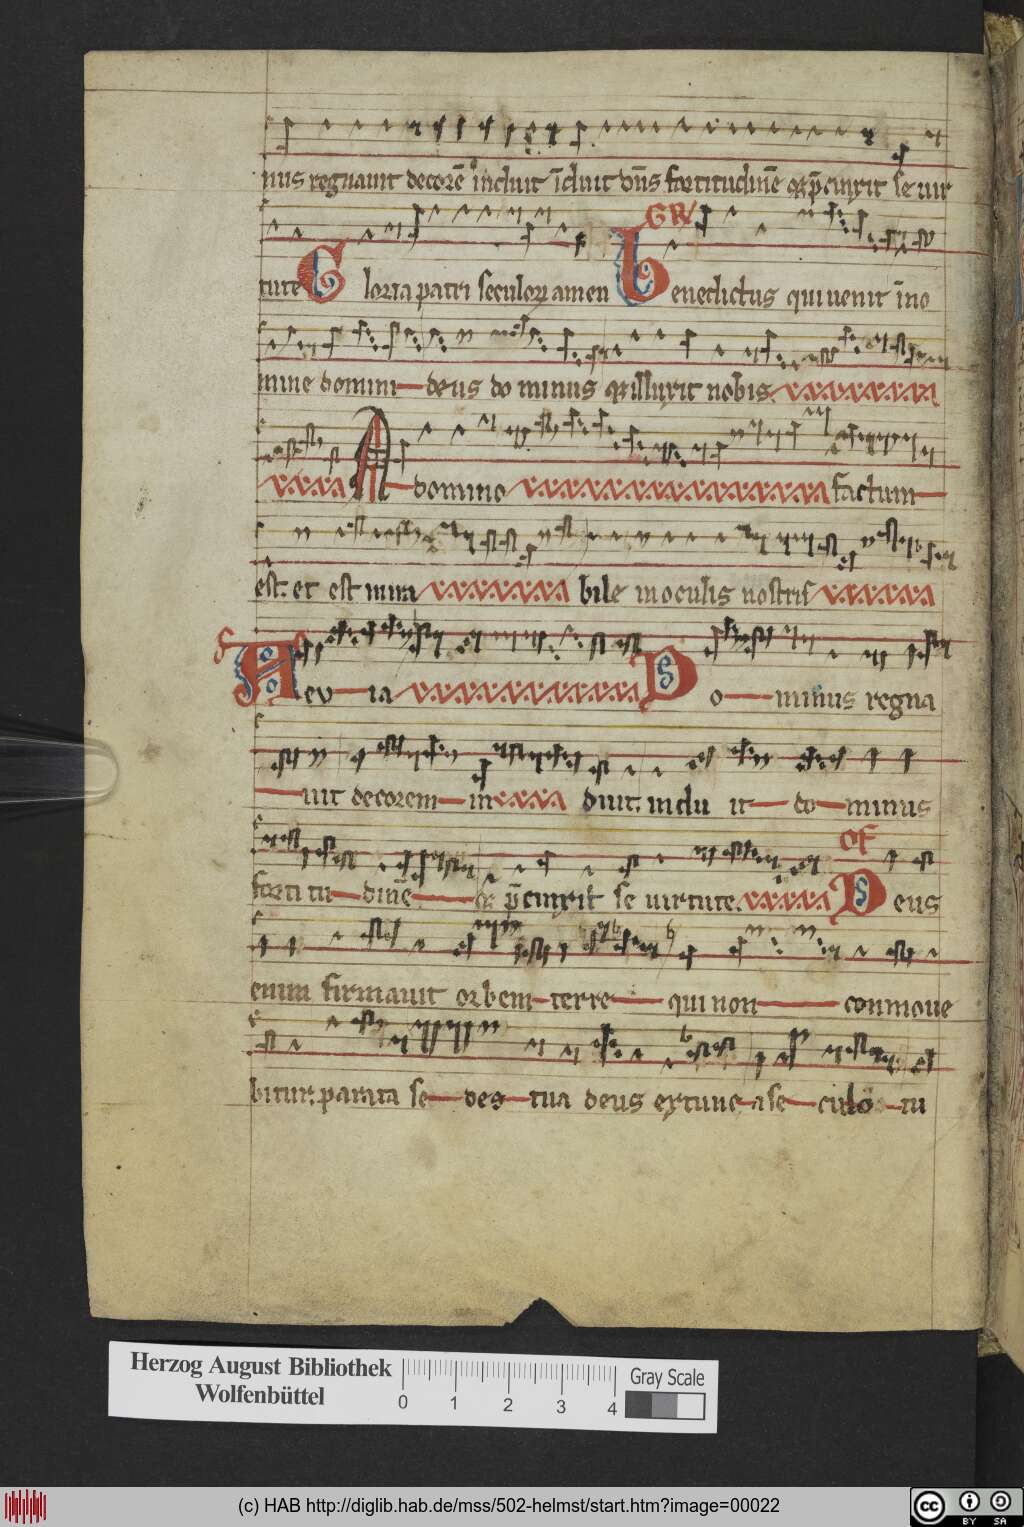 nus regnauit decorē induit īduit dn̄s fortitudinē & p̄cinxit se uir
tute Gloria patri seculoꝝ amen GR Benedictus qui uenit ī no
mine domini deus dominus & illuxit nobis.
A domino factum
est. et est mira bile in oculis nostris
Aeuia Dominus regna
uit decorem in diuit. indu it do minus
fortitu dinē & p̄cinxit se uirtute. OF Deus
enim firmauit orbem terre qui non conmoue
bitur. parata se des tua deus ex tunc a se culo tu
Herzog August Bibliothek
Wolfenbüttel
0 1 2 3 4
Gray Scale
(c) HAB http://diglib.hab.de/mss/502-helmst/start.htm?image=00022
cc BY SA